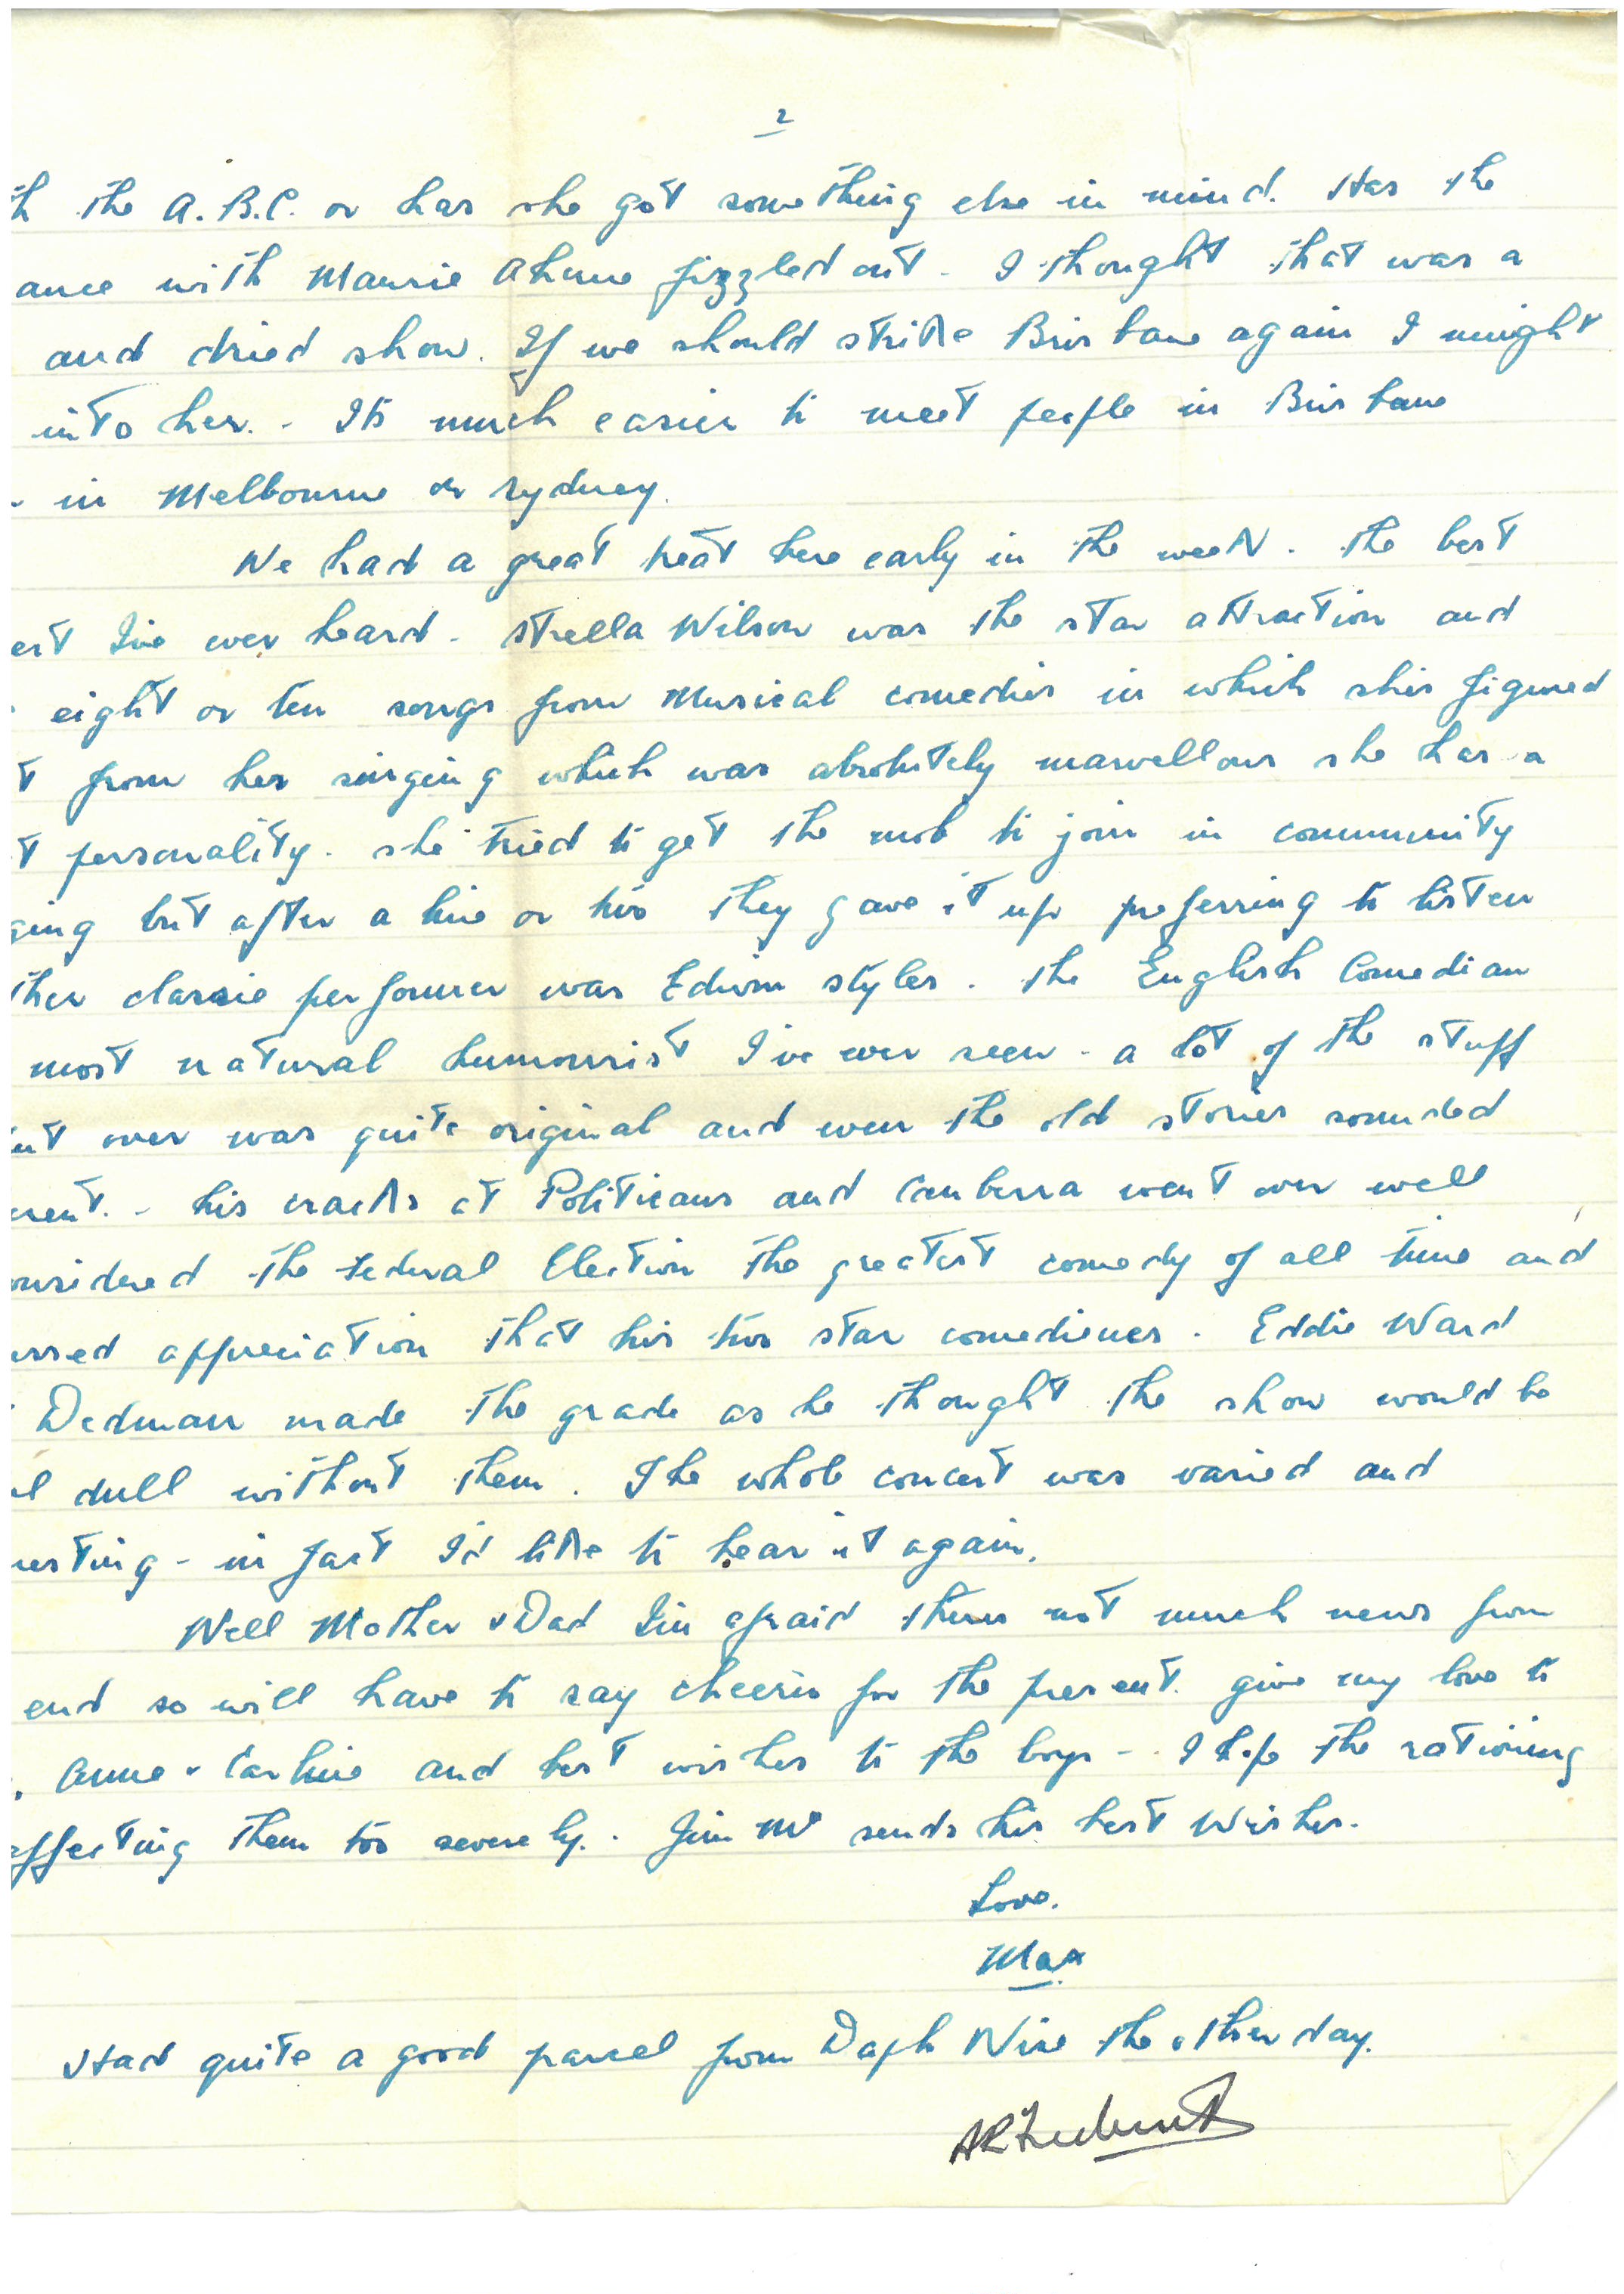 2
th the A.B.C. or has she got something else in mind. Has the
ance with Maurie Aherne fizzled out - I thought that was a
and dried show. If we should strike Brisbane again I might
into her. - Its much easier to meet people in Brisbane
in Melbourne or Sydney.
We had a great treat here early in the week. The best
ert I've ever heard - Strella Wilson was the star attraction and
eight or ten songs from Musical comedies in which shes figured
t from her singing which was absolutely marvellous she has a
t personality. She tried to get the mob to join in community
ging but after a line or two they gave it up preferring to listen
ther classic performer was Edwin Styles. The English Comedian
most natural humourist I've ever seen - a lot of the stuff
ut over was quite original and even the old stories sounded
erent. - his cracks at Politicans and Canberra went over well
onsidered the Federal Election the greatest comedy of all time and
essed appreciation that his two star comedienes. Eddie Ward
Dedman made the grade as he thought the show would be
dull without them. The whole concert was varied and
resting - in fact I'd like to hear it again.
Well Mother & Dad I'm afraid theres not much news from
end so will have to say cheerio for the present. give my love to
, Anne & Carline and best wishes to the boys - I hope the rationing
affecting them too severely. Jim Mc sends his best Wishes.
Love.
Max
Had quite a good parcel from Daph Nise the other day.